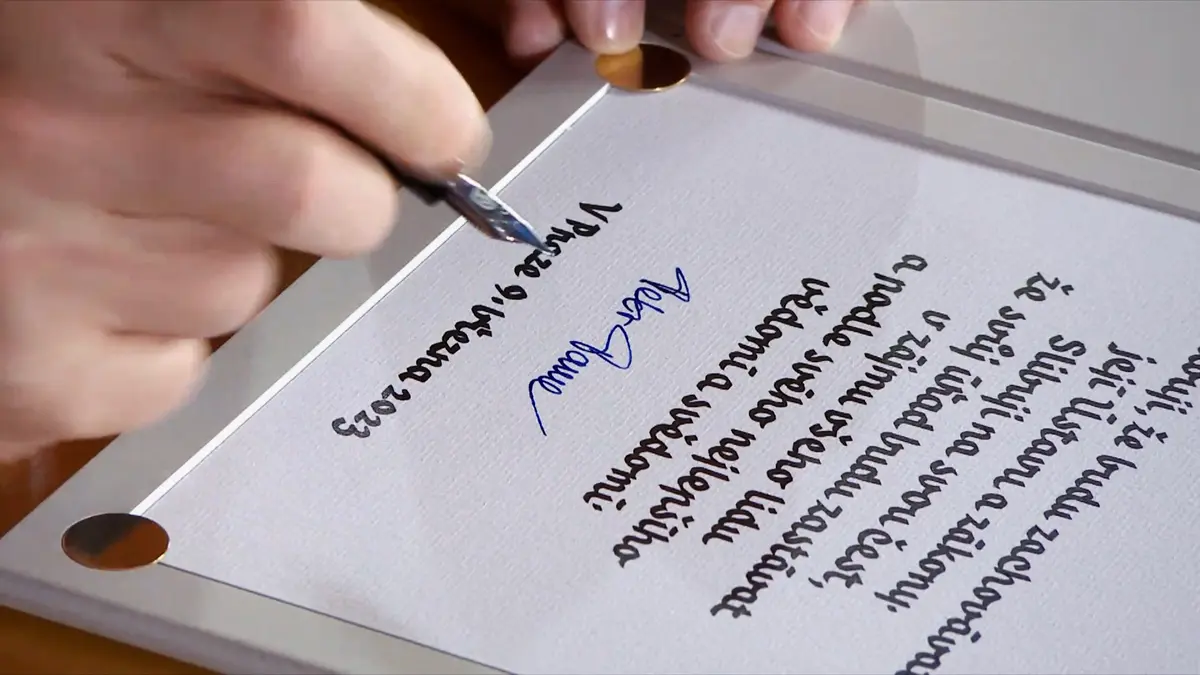 že budu zachovávat
její Ústavu a zákony.
Slibuji na svou čest,
že svůj úřad budu zastávat
v zájmu všeho lidu
a podle svého nejlepšího
vědomí a svědomí.
Petr Pavel
V Praze 9. března 2023